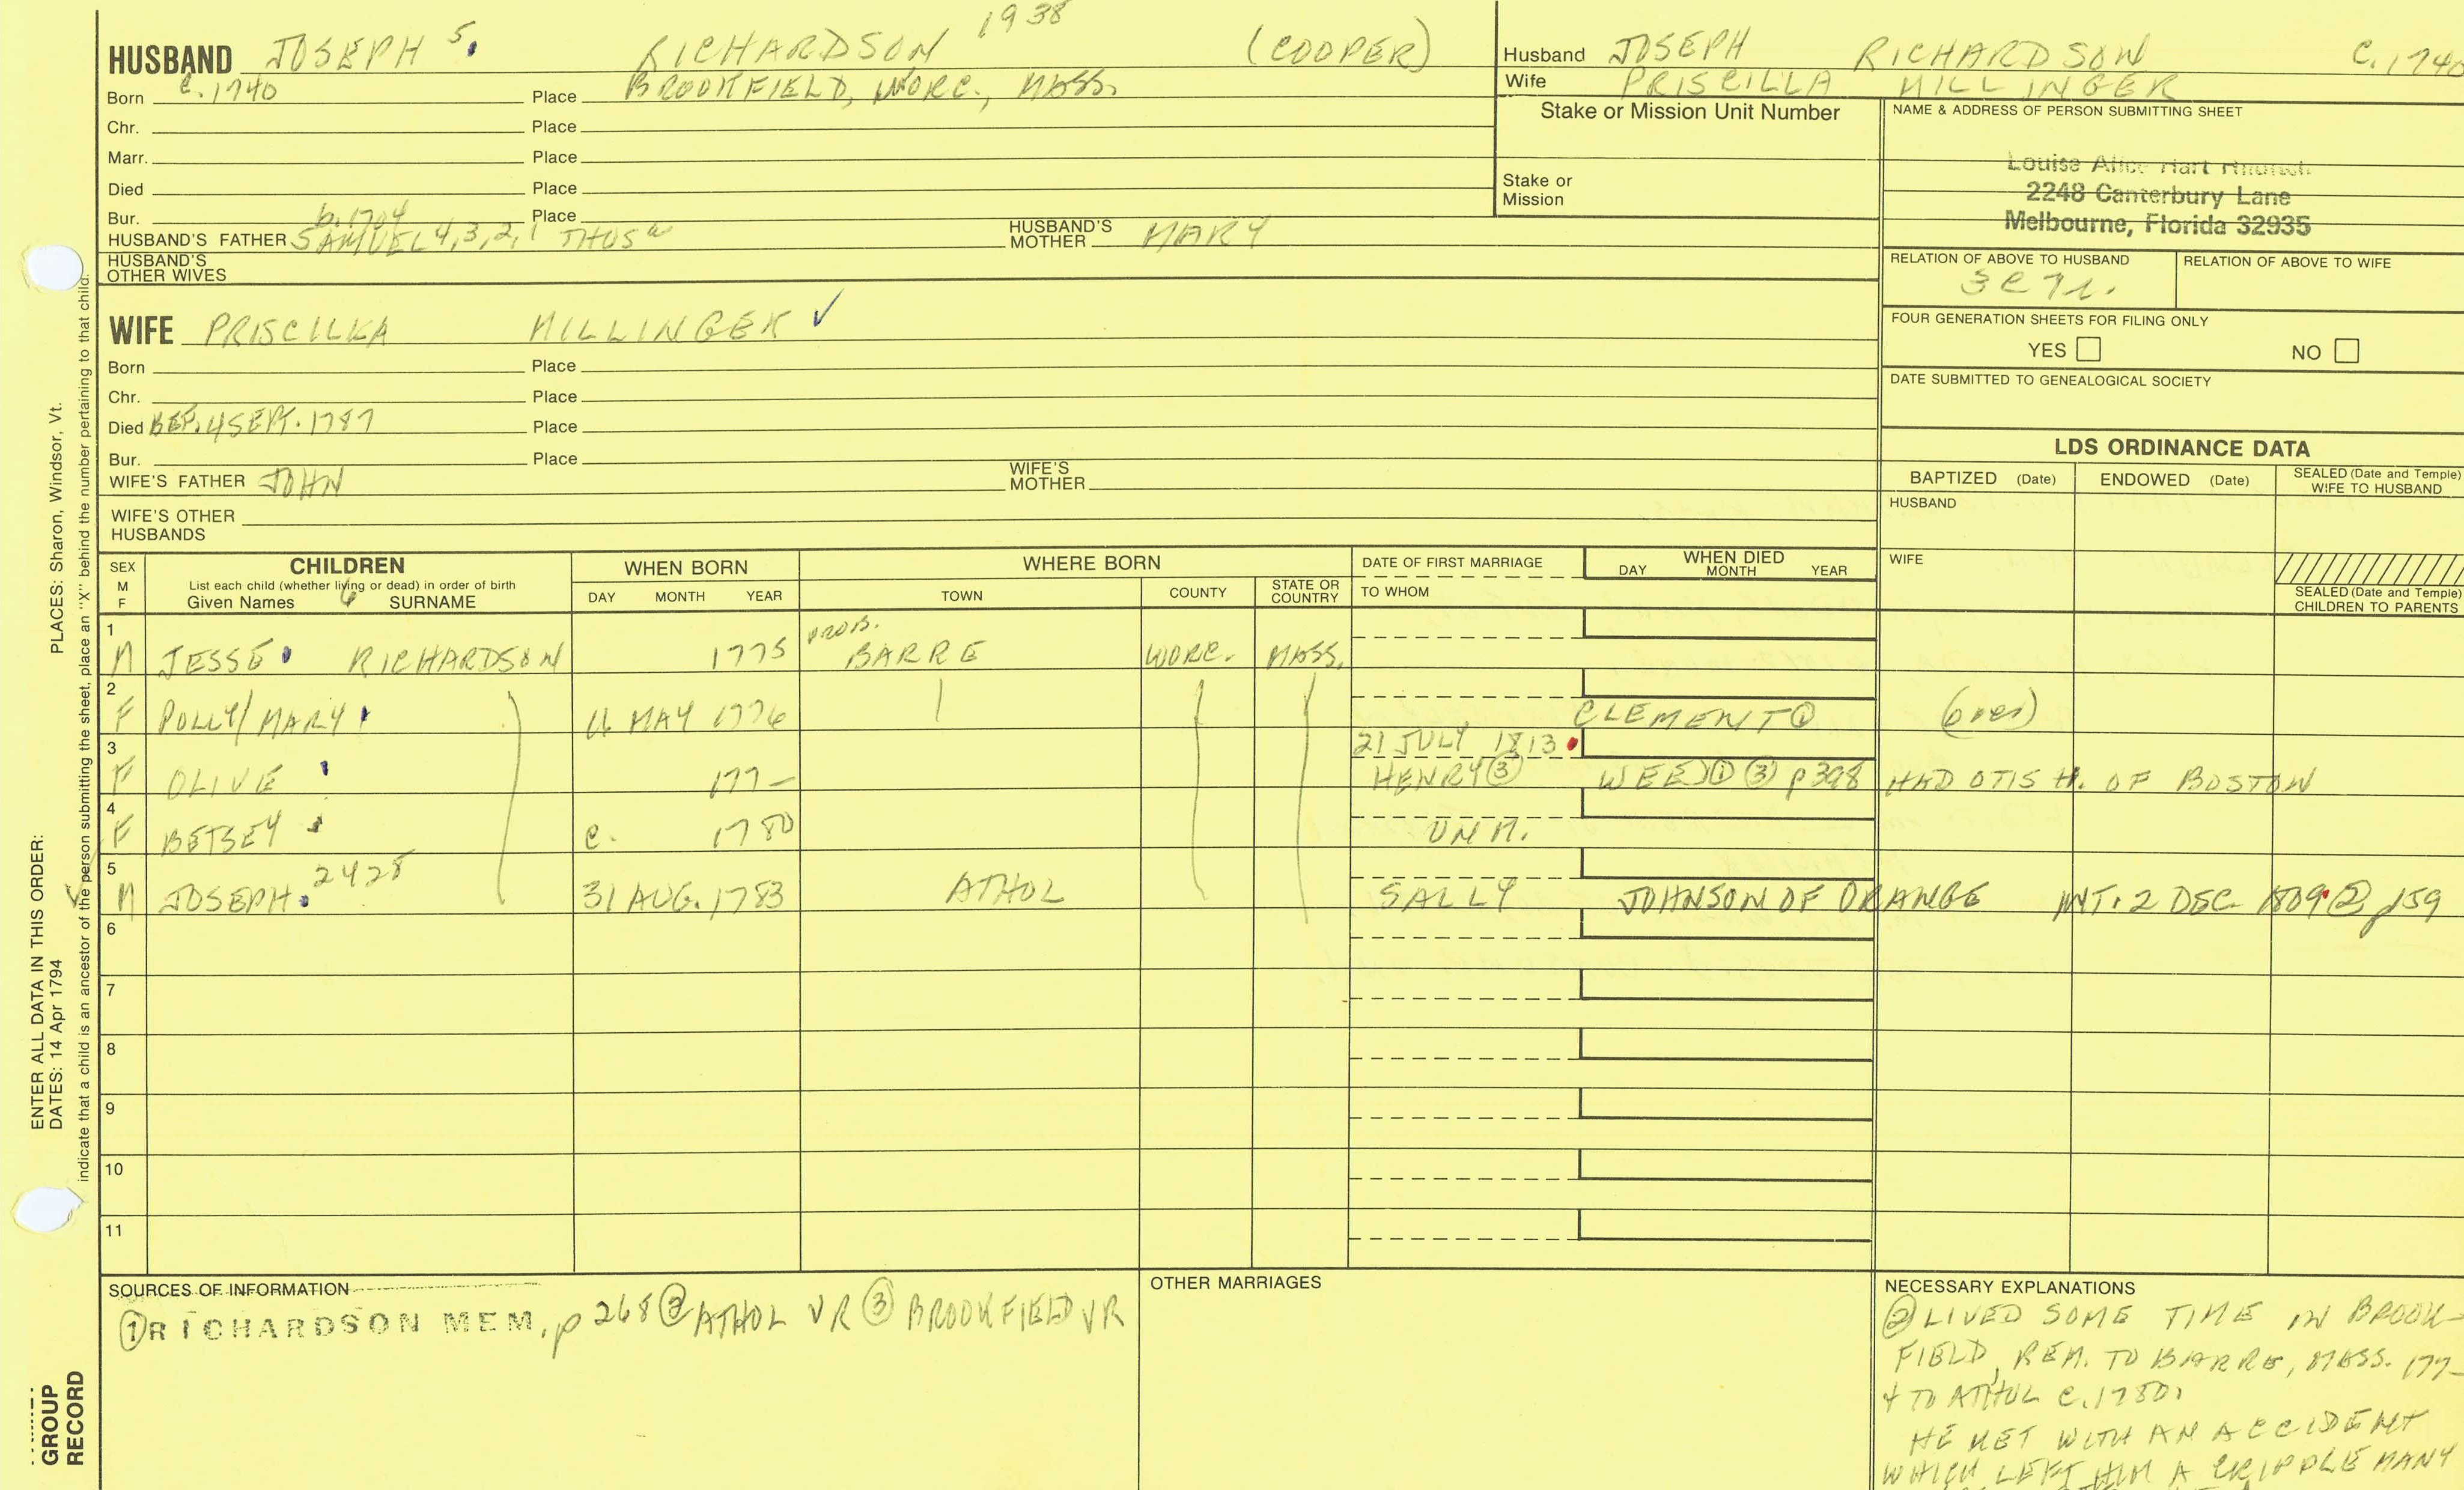 HUSBAND JOSEPH 5. RICHARDSON 1938 (COOPER)
Born c. 1740 Place BROOKFIELD, WORC., MASS.
Chr. Place
Marr. Place
Died Place
Bur. Place
b. 1704
HUSBAND'S FATHER SAMUEL 4, 3, 2, 1 THOS HUSBAND'S MOTHER MARY
HUSBAND'S OTHER WIVES
WIFE PRISCILLA MILLINGER ✓
Born Place
Chr. Place
Died BEF. 4 SEPT. 1787 Place
Bur. Place
WIFE'S FATHER JOHN WIFE'S MOTHER
WIFE'S OTHER HUSBANDS
Husband JOSEPH RICHARDSON C. 1740
Wife PRISCILLA MILLINGER
Stake or Mission Unit Number
Stake or Mission
NAME & ADDRESS OF PERSON SUBMITTING SHEET
Louise Alice Hart
2248 Canterbury Lane
Melbourne, Florida 32935
RELATION OF ABOVE TO HUSBAND RELATION OF ABOVE TO WIFE
3C7r.
FOUR GENERATION SHEETS FOR FILING ONLY
YES NO
DATE SUBMITTED TO GENEALOGICAL SOCIETY
LDS ORDINANCE DATA
BAPTIZED (Date) ENDOWED (Date) SEALED (Date and Temple) WIFE TO HUSBAND
HUSBAND
WIFE
SEALED (Date and Temple) CHILDREN TO PARENTS
SEX M F CHILDREN WHEN BORN WHERE BORN DATE OF FIRST MARRIAGE WHEN DIED
List each child (whether living or dead) in order of birth
Given Names SURNAME DAY MONTH YEAR TOWN COUNTY STATE OR COUNTRY TO WHOM DAY MONTH YEAR
1 M JESSE RICHARDSON 1775 PROB. BARRE WORC. MASS.
2 F POLLY/MARY 16 MAY 1776 CLEMENT ① (over)
3 F OLIVE 177- 21 JULY 1813 HENRY ③ WEED ① ③ p 398 HAD OTIS H. OF BOSTON
4 F BETSEY c. 1780 UNM.
5 M JOSEPH 2428 31 AUG. 1783 ATHOL SALLY JOHNSON OF ORANGE INT. 2 DEC 1809 ② p159
6
7
8
9
10
11
SOURCES OF INFORMATION
① RICHARDSON MEM, p 268 ② ATHOL VR ③ BROOKFIELD VR
OTHER MARRIAGES
NECESSARY EXPLANATIONS
② LIVED SOME TIME IN BROOK-
FIELD, REM. TO BARRE, MASS. 177-
+ TO ATHOL c. 1780.
HE MET WITH AN ACCIDENT
WHICH LEFT HIM A CRIPPLE MANY
ENTER ALL DATA IN THIS ORDER:
DATES: 14 Apr 1794 PLACES: Sharon, Windsor, Vt.
indicate that a child is an ancestor of the person submitting the sheet, place an "X" behind the number pertaining to that child.
GROUP
RECORD